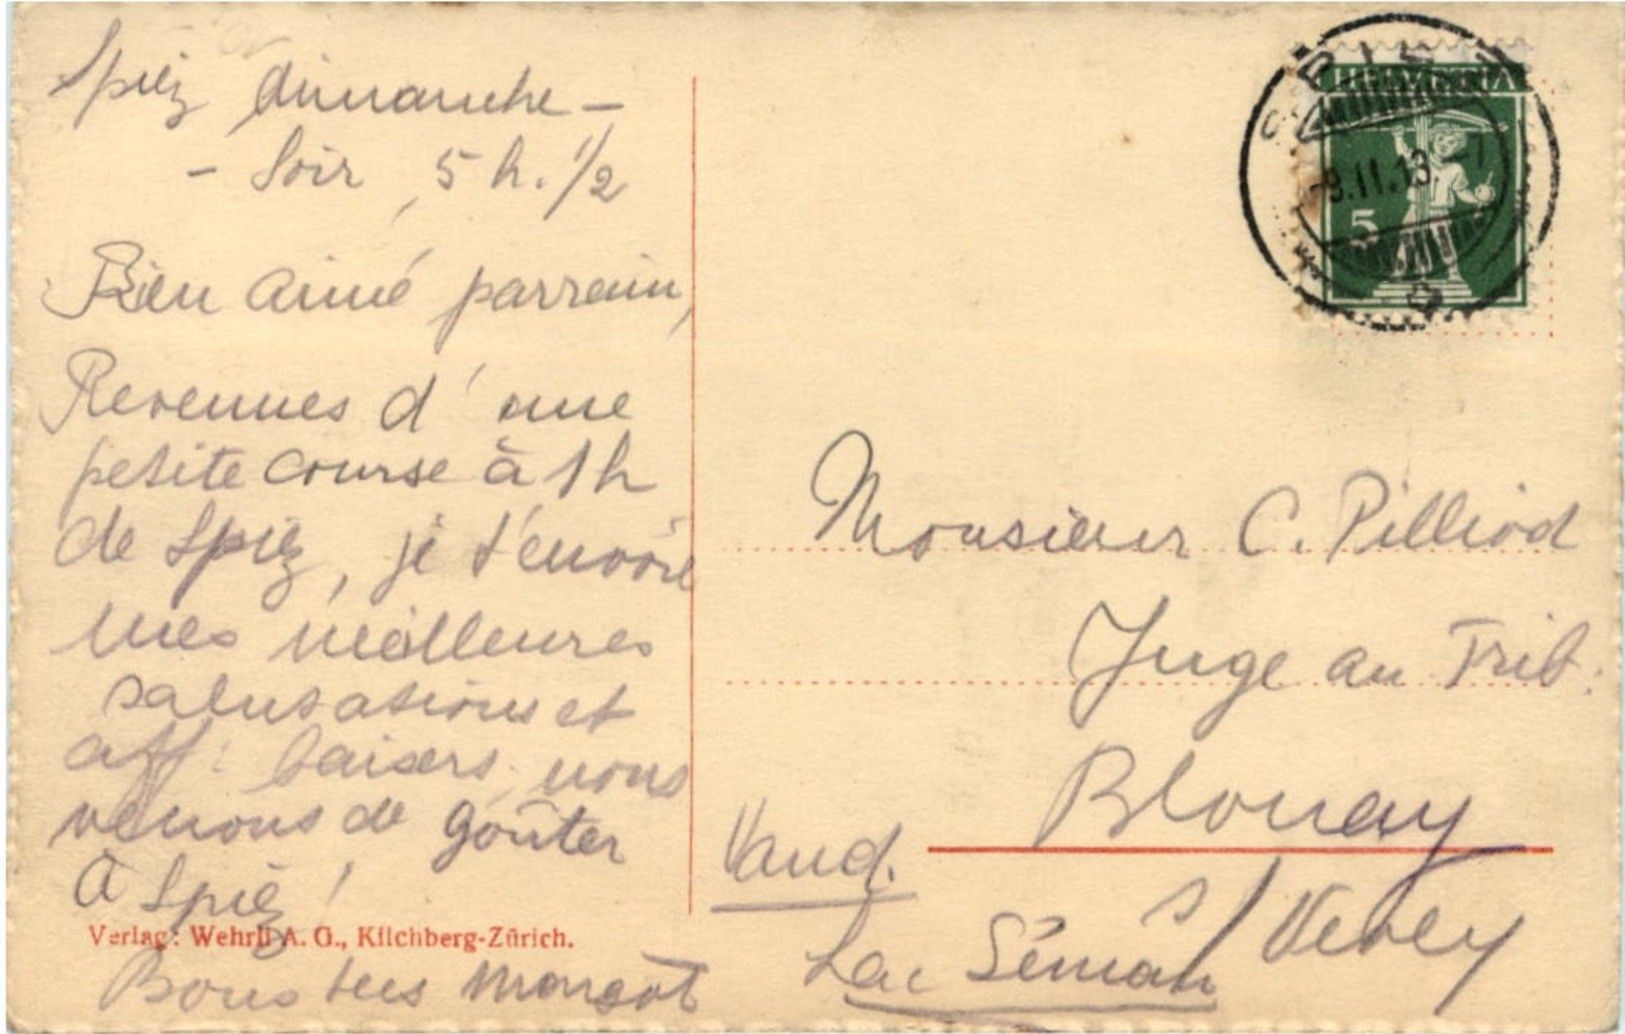 Spiez dimanche –
– Soir, 5 h. 1/2
Bien aimé parrain,
Revenues d'une
petite course à 1h
de Spiez, je t'envoie
mes meilleures
salutations et
aff: baisers, nous
venons de goûter
à Spiez!
Verlag: Wehrli A. G., Kilchberg-Zürich.
Margot
SPIEZ
HELVETIA
-9.II.13.-7
5
Monsieur C. Pilliod
Juge au Trib.
Blonay
s/Vevey
Vaud.
Lac Léman